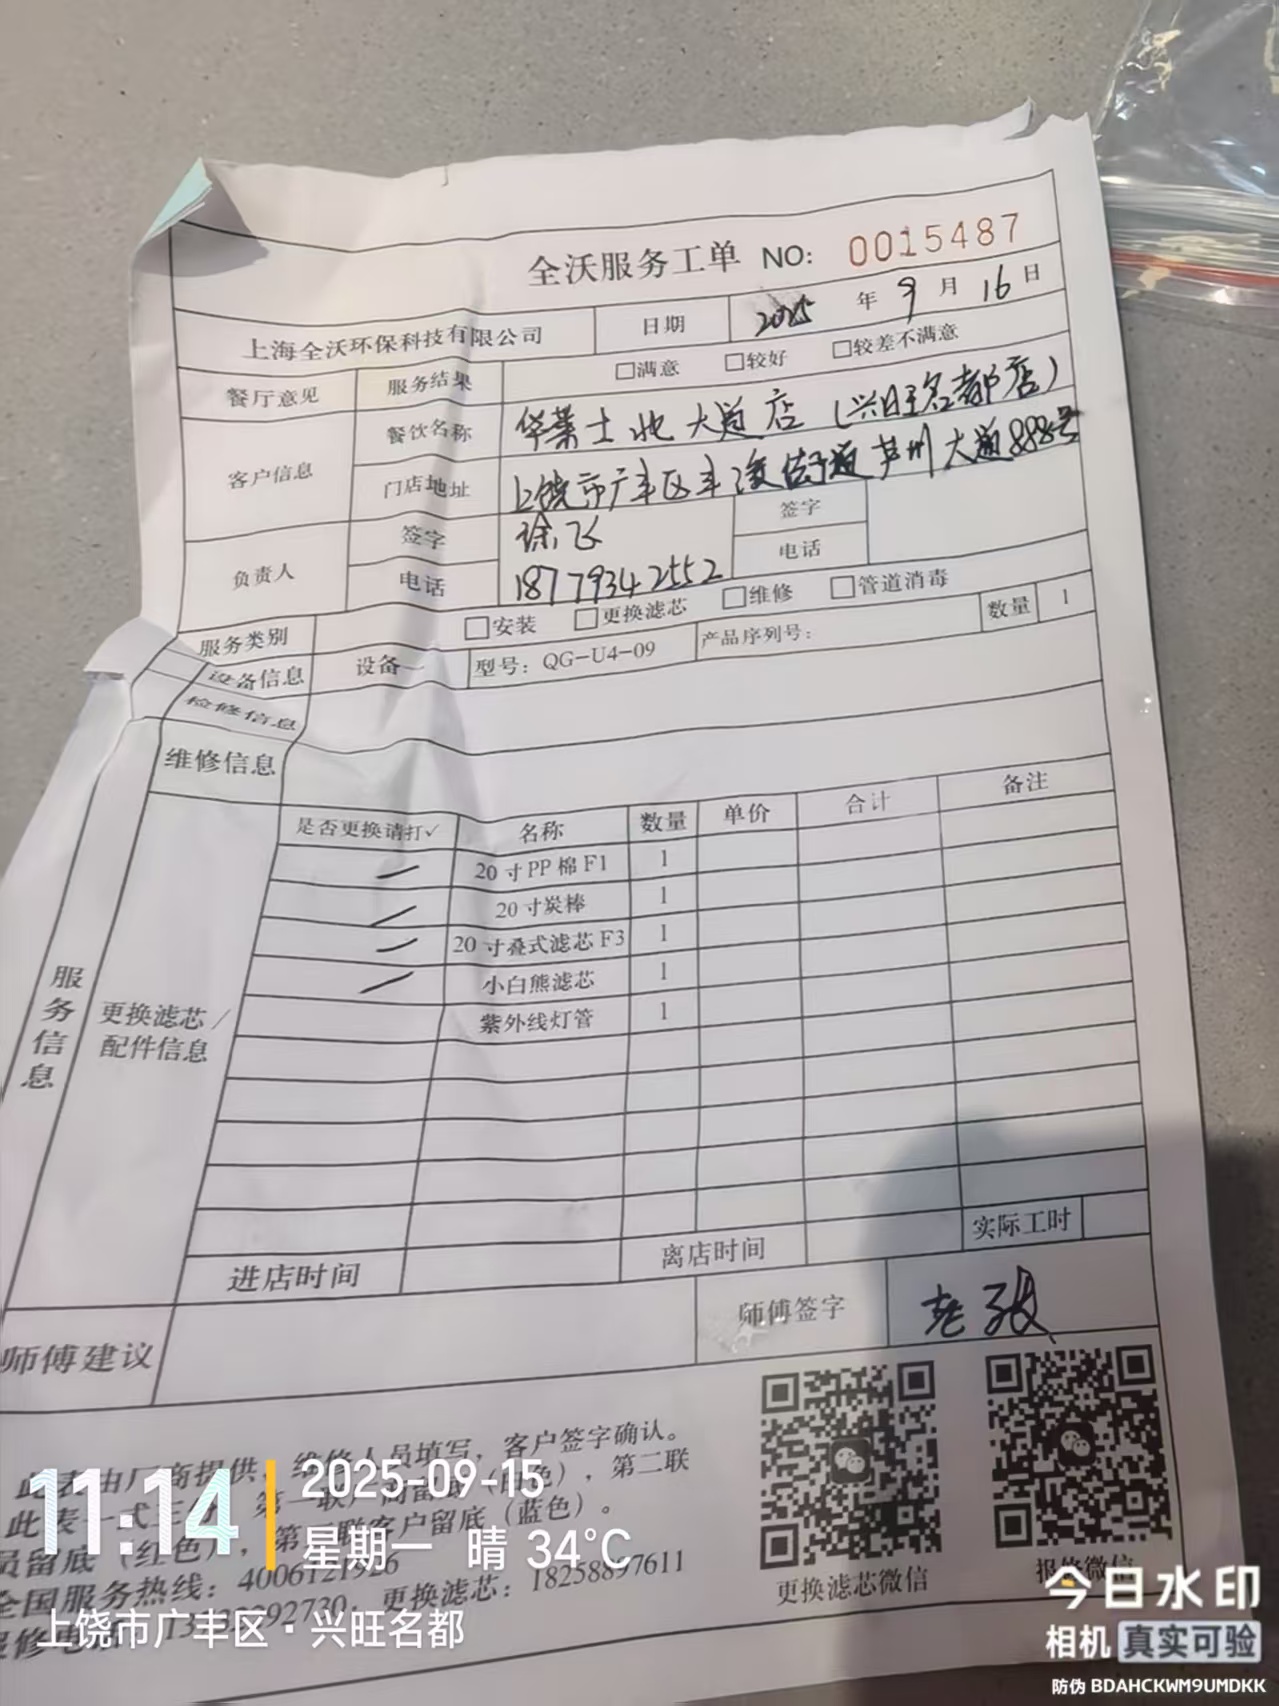 全沃服务工单 NO: 0015487
上海全沃环保科技有限公司 日期 2025 年 9 月 16 日
餐厅意见 服务结果 □满意 □较好 □较差不满意
客户信息 餐饮名称 华莱士 大道店(兴旺名都店)
门店地址 上饶市广丰区丰溪街道芦洲大道888号
负责人 签字 徐飞 签字
电话 18779342552 电话
服务类别 □安装 □更换滤芯 □维修 □管道消毒
设备信息 设备一 型号: QG-U4-09 产品序列号: 数量 1
检修信息
维修信息
服务信息
更换滤芯/
配件信息
是否更换请打✓ 名称 数量 单价 合计 备注
20寸PP棉F1 1
20寸炭棒 1
20寸叠式滤芯F3 1
小白熊滤芯 1
紫外线灯管 1
进店时间 离店时间 实际工时
师傅建议 师傅签字 老张
此表由厂商提供,维修人员填写,客户签字确认。
此表一式三 第一联 商留底(白色),第二联
员留底(红色),第三联客户留底(蓝色)。
全国服务热线: 4006121926
修电 92730, 更换滤芯: 18258897611
更换滤芯微信 报修微信
11:14 2025-09-15
星期一 晴 34℃
上饶市广丰区·兴旺名都
今日水印
相机 真实可验
防伪 BDAHCKWM9UMDKK